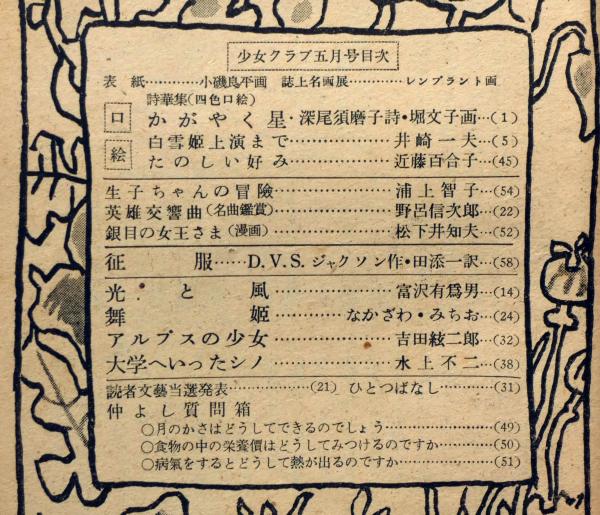 少女クラブ五月号目次
表紙…………小磯良平画　誌上名画展…………レンブラント画
詩華集(四色口絵)
口絵
かがやく星・深尾須磨子詩・堀文子画…(1)
白雪姫上演まで………………井崎一夫…(5)
たのしい好み…………………近藤百合子…(45)
生子ちゃんの冒険………………浦上智子…(54)
英雄交響曲(名曲鑑賞)………………野呂信次郎…(22)
銀目の女王さま(漫画)………………松下井知夫…(52)
征服……D.V.S.ジャクソン作・田添一訳…(58)
光と風…………………富沢有爲男…(14)
舞姫……………なかざわ・みちお…(24)
アルプスの少女………………吉田絃二郎…(32)
大学へいったシノ………………水上不二…(38)
読者文藝当選発表……………(21)　ひとつばなし…………(31)
仲よし質問箱
○月のかさはどうしてできるのでしょう………………(49)
○食物の中の栄養價はどうしてみつけるのですか…………(50)
○病氣をするとどうして熱が出るのですか………………(51)